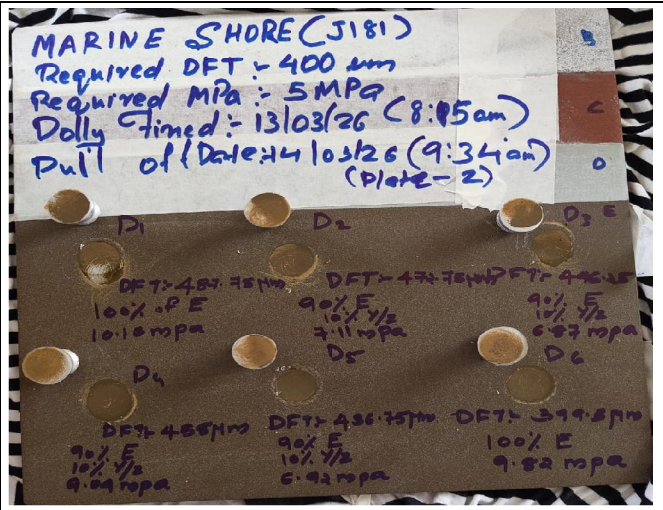 MARINE SHORE (J181)
Required DFT :- 400 um
Required MPa :- 5 MPa
Dolly Fixed :- 13/03/26 (8:15 am)
Pull off Date :- 14/03/26 (9:34 am)
(Plate-2)
B
C
D
D1
DFT:- 487.75 µm
100% of E
10.16 mpa
D2
DFT:- 472.75 µm
90% E
10% Y/Z
7.11 mpa
D3 E
DFT:- 446.25
90% E
10% Y/Z
6.87 mpa
D4
DFT:- 458 µm
90% E
10% Y/Z
9.04 mpa
D5
DFT:- 436.75 µm
90% E
10% Y/Z
6.92 mpa
D6
DFT:- 399.5 µm
100% E
9.82 mpa